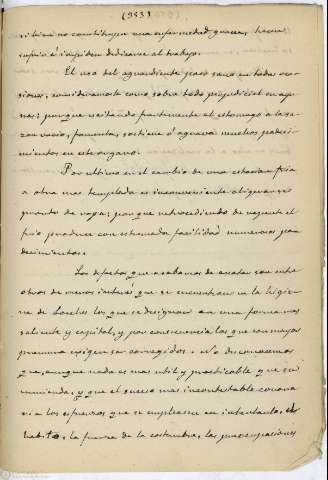 (353)
si bien no constituyen una enfermedad grave, hacen
sufrir é impiden dedicarse al trabajo.
El uso del aguardiente poco sano en todas oca-
siones, considerámosla como sobre todo perjudicial en ayu-
nas; porque exitando fuertemente el estomago á la sa-
zon vacio, fomenta, sostiene ó agrava muchos padeci-
mientos en este organo.
Por ultimo en el cambio de una estacion fria
a otra mas templada es inconveniente aligerarse
pronto de ropa; porque retrocediendo de repente el
frio produce con estremada facilidad numerosos pa-
decimientos.
Los defectos que acabamos de anotar son entre
otros de menos interés que se encuentran en la higie-
ne de los que se designan en una forma mas
saliente y capital, y por consecuencia los que con mayor
premura exigen ser corregidos. No desconocemos
que, aunque nada es mas util y practicable que su
enmienda, y que el suceso mas incontestable corona-
ria los esfuerzos que se empleasen en intentarlo, el
habito, la fuerza de la costumbre, las preocupaciones